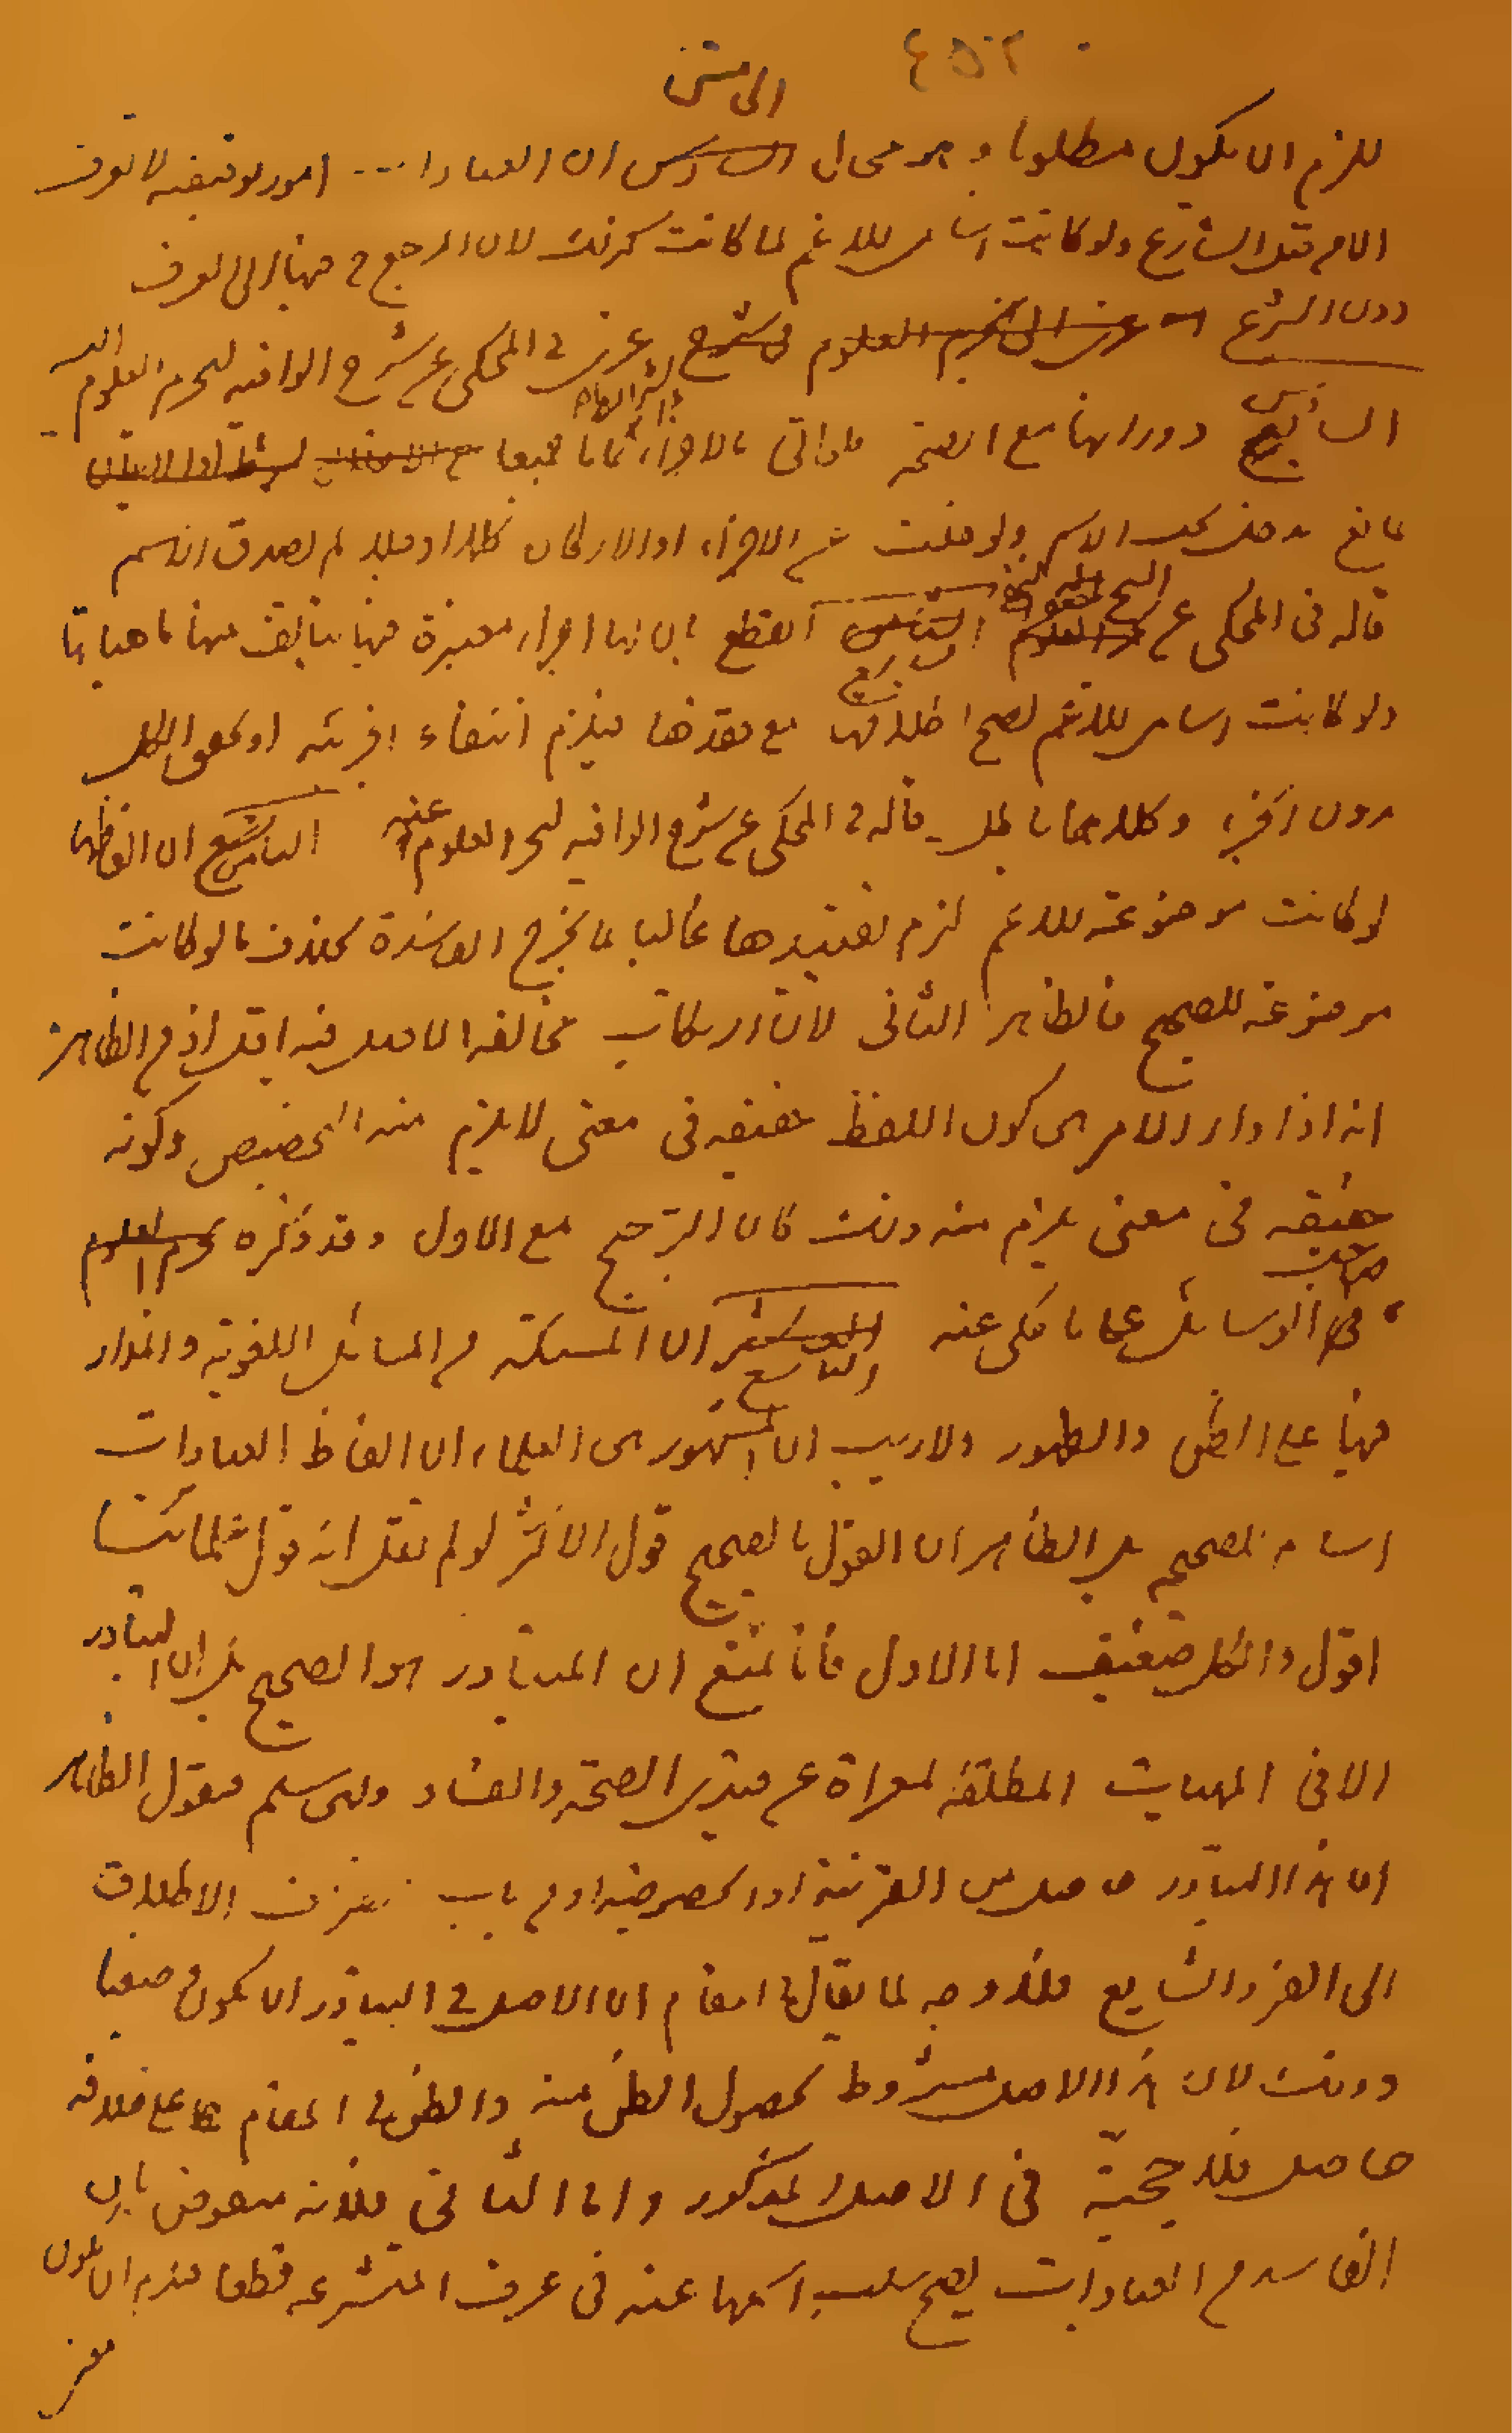 ٤٥٢
الخامس
للزم ان يكون مطلوبا و هو محال السادس ان العبادات امور توقيفيه لا تعرف
الا من قبل الشارع ولو كانت اسامي للاعم لما كانت كذلك لان المرجع فيها الى العرف
دون الشرع عزى في المحكي عن شرح الوافيه لبحر العلوم اليه
السادس دورانها مع الصحة فان اتى بالاجزاء تماما جميعا
مانع دخل تحت الاسم ولو خلت عن الاجزاء او الاركان كلا او جلا لم يصدق الاسم
قاله في المحكي عن السابع القطع بان لها اجزاء معتبرة فيها يتألف منها ماهياتها
ولو كانت اسامي للاعم لصح اطلاقها مع فقدها فيلزم انتفاء الجزئيه او تحقق الكل
بدون الجزء وكلاهما باطل قاله في المحكي عن شرح الوافيه لبحر العلوم عنه الثامن ان الفاظها
لو كانت موضوعة للاعم لزم تقييدها غالبا بما يخرج الفاسدة بخلاف ما لو كانت
موضوعة للصحيح فالظاهر الثاني لان ارتكاب مخالفه الاصل فيه اقل اذ من الظاهر
انه اذا دار الامر بين كون اللفظ حقيقه في معنى لا يلزم منه التخصيص وكونه
حقيقه في معنى يلزم منه ذلك كان الترجيح مع الاول وقد ذكره بحر العلوم
صاحب الوسائل على ما حكى عنه التاسع ان المسئلة من المسائل اللغوية والمدار
فيها على الظن والظهور ولا ريب ان المشهور بين العلماء ان الفاظ العبادات
اسام للصحيحه بل الظاهر ان القول بالصحيح قول الاكثر لو لم نقل انه قول علمائنا
اقول والكل ضعيف اما الاول فانا نمنع ان المتبادر هو الصحيح بل ان المتبادر
الا في المهيات المطلقة المعراة عن قيدي الصحة والفساد ولئن سلم فنقول الظاهر
ان هذا التبادر حاصل من القرينة او الخصوصية او من باب انصراف الاطلاق
الى الفرد الشايع فلا وجه لما يقال في المقام ان الاصل في التبادر ان يكون وضعيا
وذلك لان هذا الاصل مشروط بحصول الظن منه والظن في المقام على خلافه
حاصل فلا حجية في الاصل المذكور واما الثاني فلانه منقوض بان
الفاسد من العبادات يصح سلب اسمها عنه في عرف المتشرعه قطعا فيلزم ان يكون